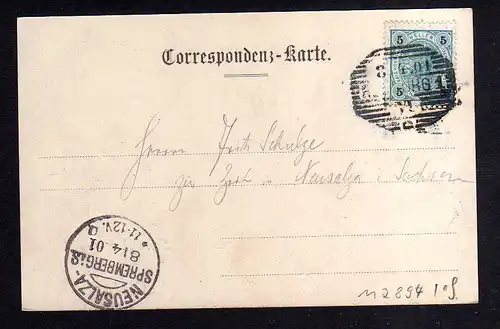 5 HELLER 5
5
Correspondenz-Karte.
Herrn Fritz Schulze
zur Zeit in Neusalza i Sachsen
NEUSALZA-
SPREMBERG i. S.
8/4 01
* 11-12 V. a
M2894 10,-